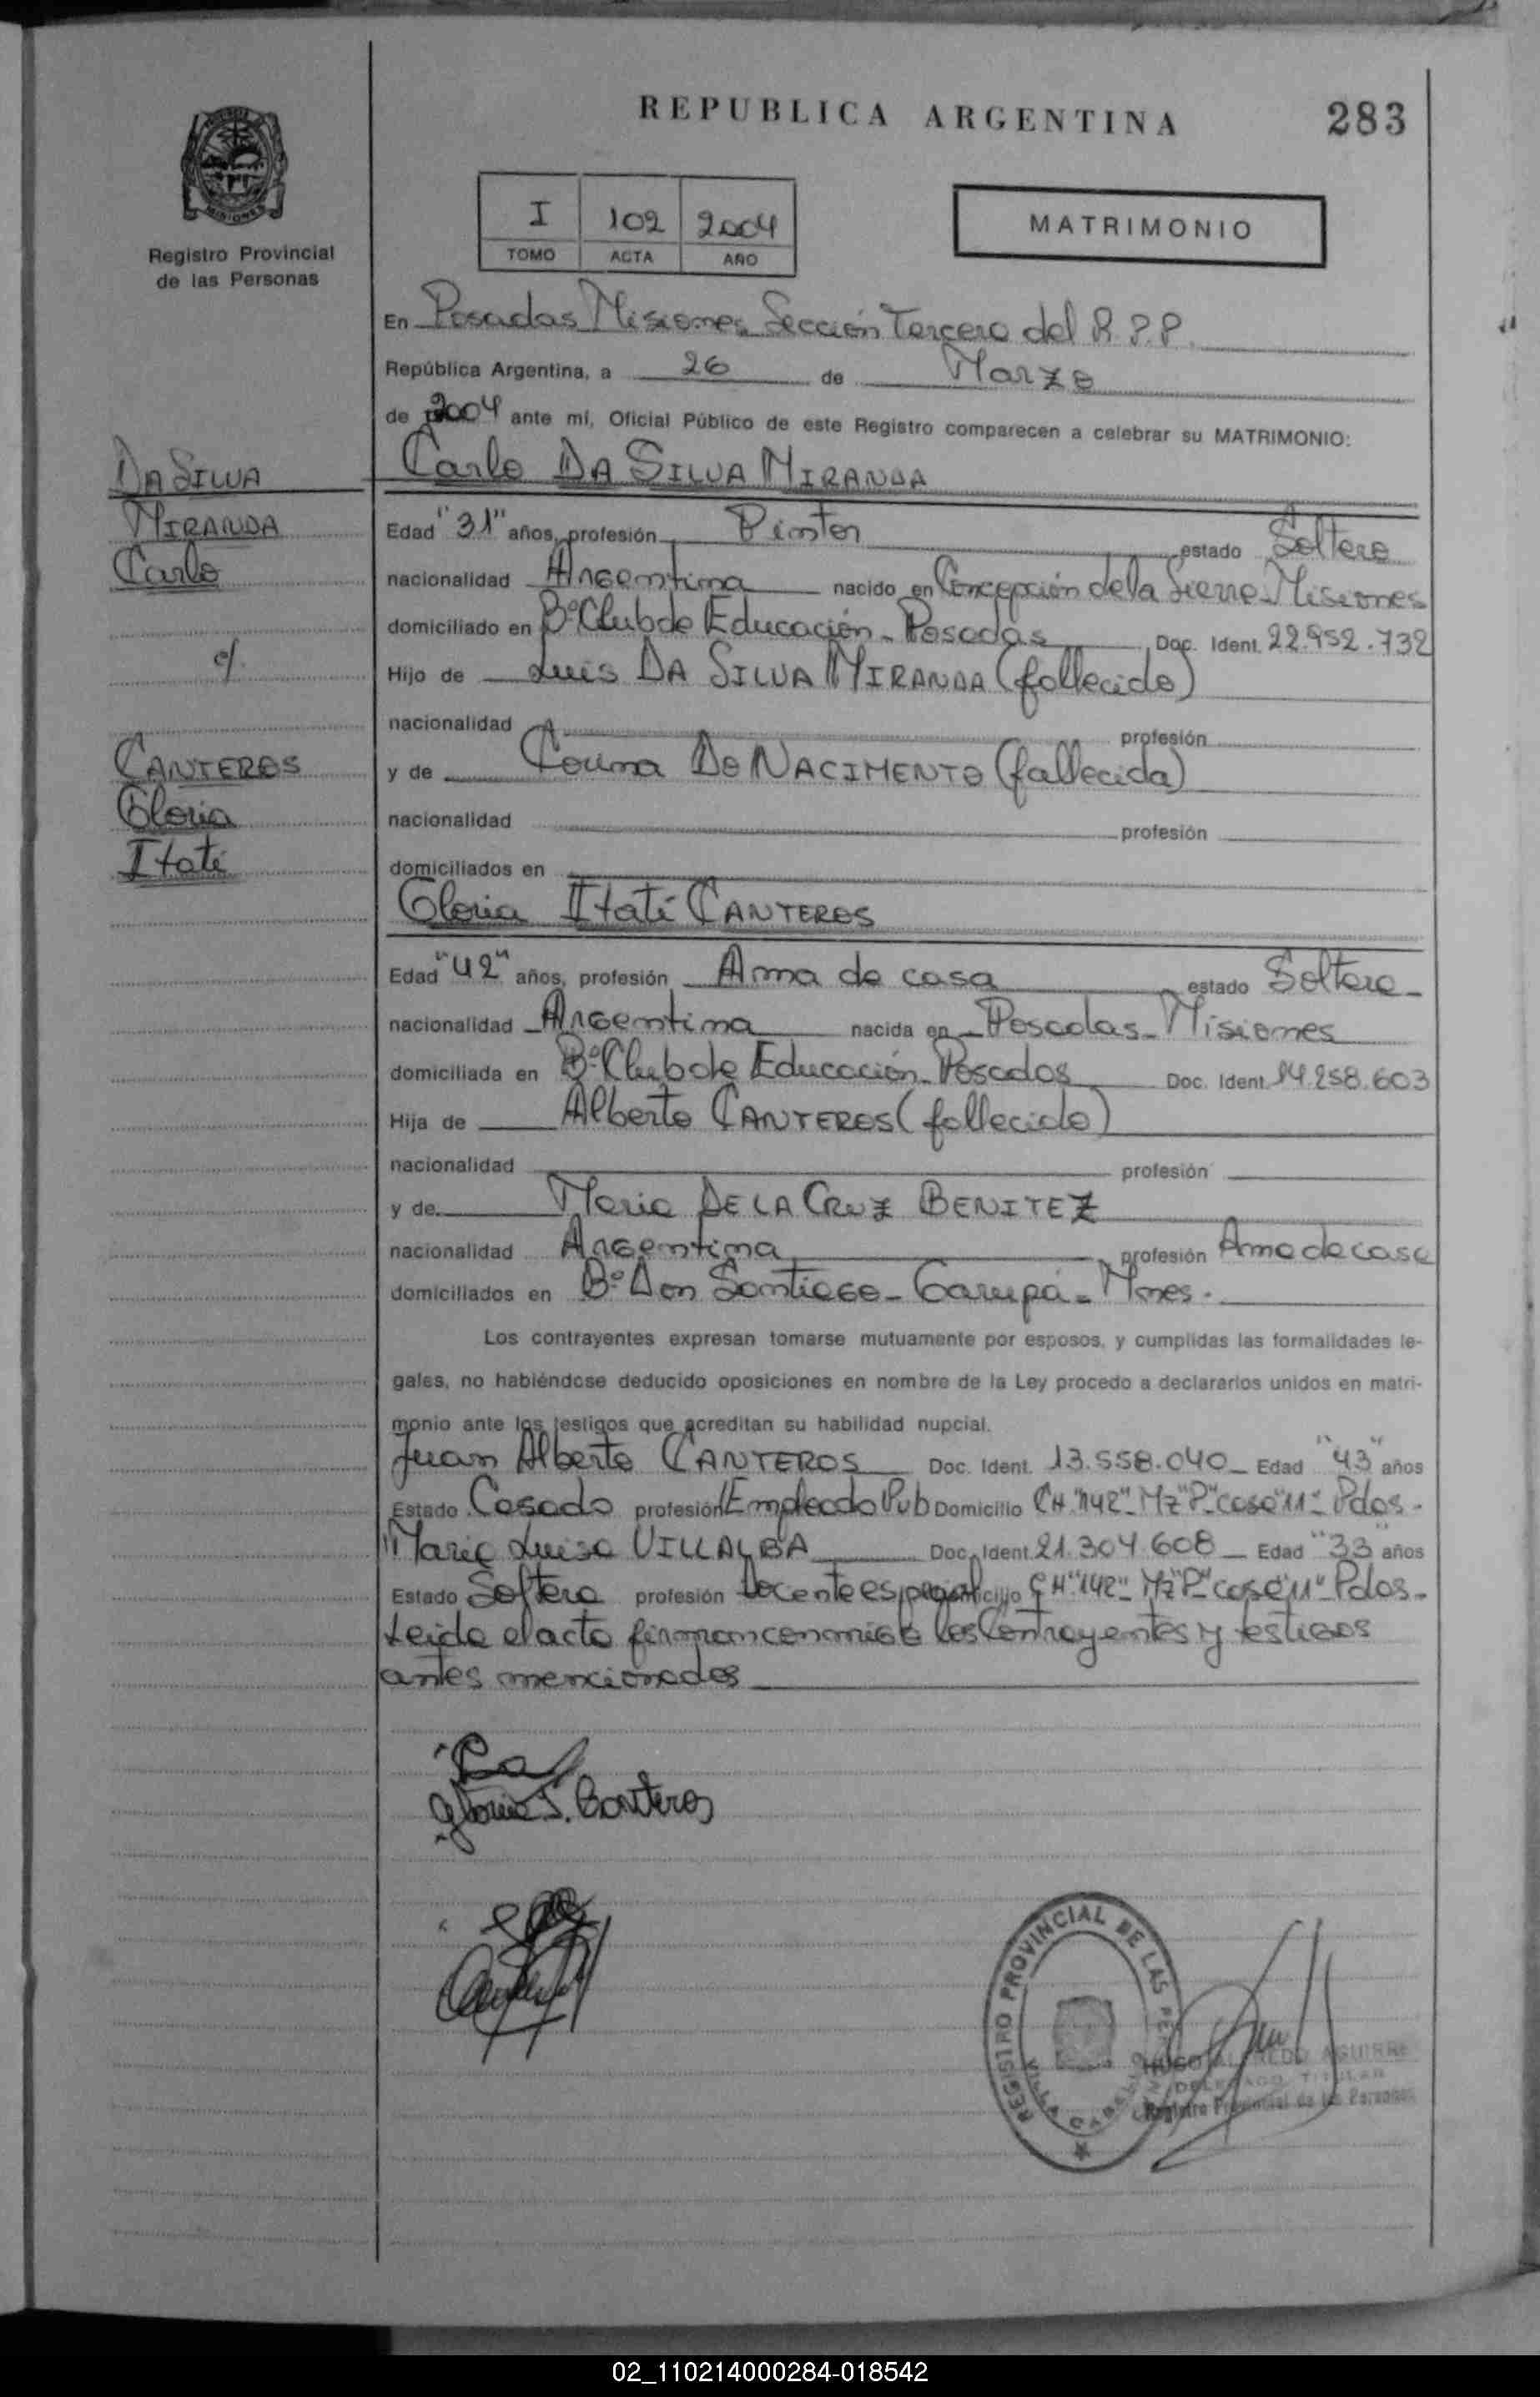 REPUBLICA ARGENTINA
283
MISIONES
Registro Provincial
de las Personas
I 102 2004
TOMO ACTA AÑO
MATRIMONIO
En Posadas Misiones Sección Tercera del R.P.P.
República Argentina, a 26 de Marzo
de 2004 ante mí, Oficial Público de este Registro comparecen a celebrar su MATRIMONIO:
DA SILVA
MIRANDA
Carlo
c/.
CANTEROS
Gloria
Itatí
Carlo DA SILVA MIRANDA
Edad "31" años, profesión Pintor estado Soltero
nacionalidad Argentina nacido en Concepción de la Sierra Misiones
domiciliado en Bº Club de Educación - Posadas Doc. Ident. 22.952.732
Hijo de Luis DA SILVA MIRANDA (fallecido)
nacionalidad profesión
y de DO NACIMENTO (fallecida)
nacionalidad profesión
domiciliados en
Gloria Itatí CANTEROS
Edad "42" años, profesión Ama de casa estado Soltera
nacionalidad Argentina nacida en Posadas - Misiones
domiciliada en Bº Club de Educación - Posadas Doc. Ident. 14.258.603
Hija de Alberto CANTEROS (fallecido)
nacionalidad profesión
y de Maria DE LA CRUZ BENITEZ
nacionalidad Argentina profesión Ama de casa
domiciliados en Bº Don Santiago - Garupá - Mnes.
Los contrayentes expresan tomarse mutuamente por esposos, y cumplidas las formalidades le-
gales, no habiéndose deducido oposiciones en nombre de la Ley procedo a declararlos unidos en matri-
monio ante los testigos que acreditan su habilidad nupcial.
Juan Alberto CANTEROS Doc. Ident. 13.558.040 Edad "43" años
Estado Casado profesión Empleado Pub Domicilio CH "142" - Mz "P" - casa "11" - Pdas.
Maria Luisa VILLALBA Doc. Ident. 21.304.608 Edad "33" años
Estado Soltera profesión Docente especial Domicilio CH "142" - Mz "P" - casa "11" - Pdas.
Leida el acta firman conmigo los Contrayentes y testigos
antes mencionados
Gloria I. Canteros
REGISTRO PROVINCIAL DE LAS PERSONAS
VILLA CABELLO
HUGO ALFREDO AGUIRRE
DELEGADO TITULAR
Registro Provincial de las Personas
02_110214000284-018542